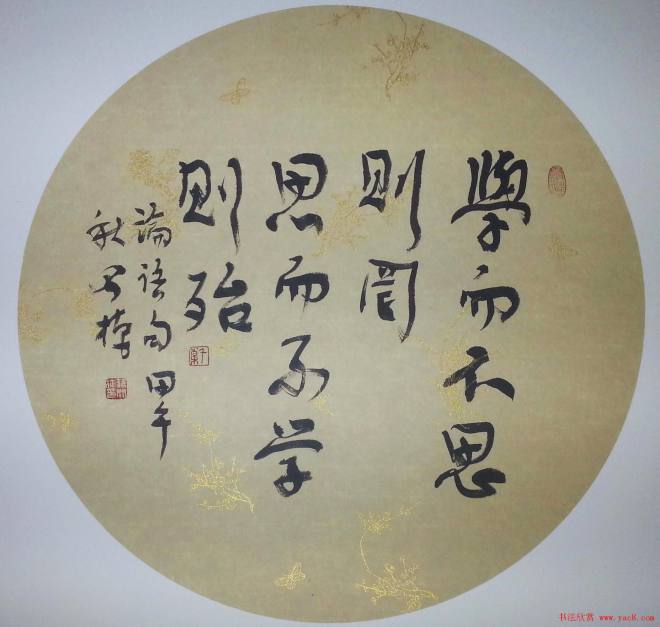 學而不思
則罔
思而不学
則殆
論語句 甲午
秋
书法欣赏 www.yac8.com